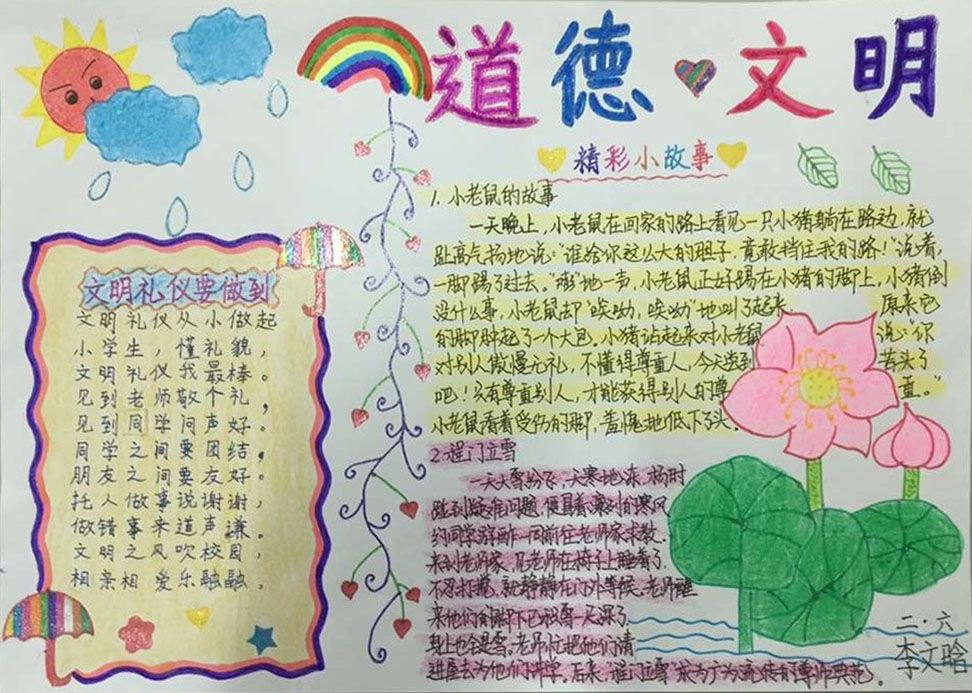 道德文明
精彩小故事
1.小老鼠的故事
一天晚上,小老鼠在回家的路上看见一只小猪躺在路边,就
趾高气扬地说:“谁给你这么大的胆子,竟敢挡住我的路!”说着,
一脚踢了过去。“嘭”地一声,小老鼠正好踢在小猪的脚上,小猪倒
没什么事,小老鼠却“唉呦,唉呦”地叫了起来, 原来它
的脚肿起了一个大包。小猪站起来对小老鼠 说:“你
对别人傲慢无礼,不懂得尊重人,今天尝到 苦头了
吧!只有尊重别人,才能获得别人的尊 重。”
小老鼠看着受伤的脚,羞愧地低下了头。
2.程门立雪
一天大雪纷飞,天寒地冻,杨时
碰到疑难问题,便冒着凛冽的寒风
约同学游酢一同前往老师家求教,
来到老师家,见老师在椅子上睡着了,
不忍打扰,就静静在门外等候。老师醒
来他们的脚下已积雪一尺深了,
身上也全是雪。老师忙把他们请
进屋去为他们讲学。后来“程门立雪”成为广为流传的尊师典范。
文明礼仪要做到
文明礼仪从小做起
小学生,懂礼貌,
文明礼仪我最棒。
见到老师敬个礼,
见到同学问声好。
同学之间要团结,
朋友之间要友好。
托人做事说谢谢,
做错事来道声谦。
文明之风吹校园,
相亲相爱乐融融,
二·六
李文晗